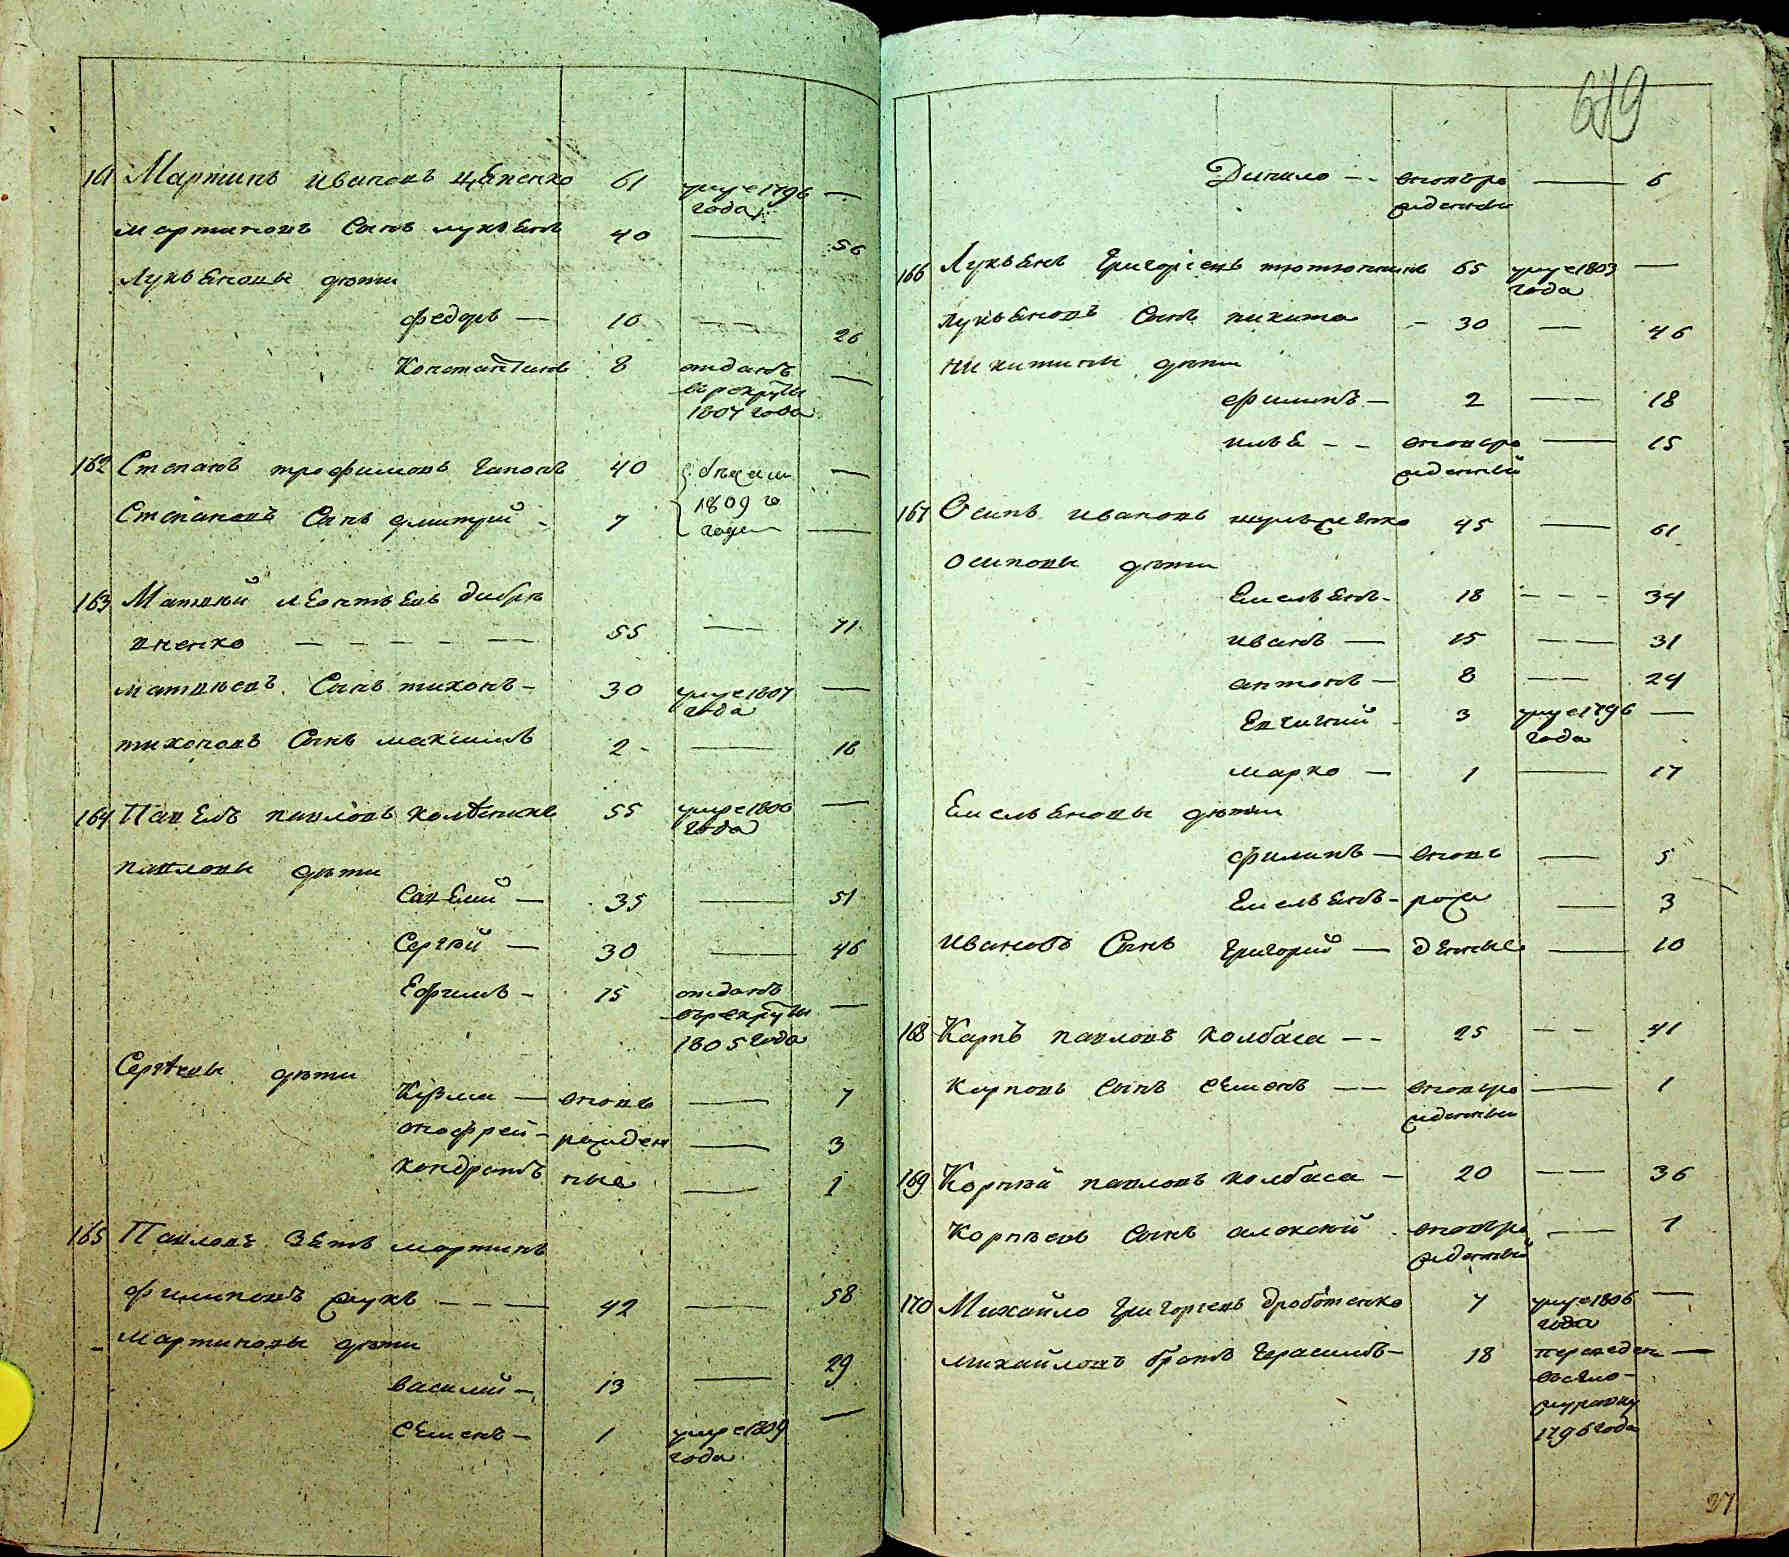 161 Мартинъ Ивановъ Цябенко 61 умре 1796 —
года
мартиновъ сынъ лукьянъ 40 — 56
Лукьяновы дѣти
федоръ — 10 — 26
Константинъ 8 отданъ —
в рекруты
1807 года
162 Степанъ трофимовъ гапонъ 40 бежали —
1809 го
Степановъ Сынъ дмитрий - 7 года —
163 Матвѣй леонтьевъ дибрѣ
вненко — — — — — 55 — 71
матвѣевъ Сынъ тихонъ - 30 умре 1807 —
года
тихоновъ Сынъ максимъ 2 - — 18
164 Павелъ павловъ колѣсникъ 55 умре 1806 —
года
павловы дѣти
Савелий — 35 — 51
Сергѣй — 30 — 46
Ефимъ - 15 отданъ —
в рекруты
1805 года
Сергѣевы дѣти
Кузма — вновь — 7
онофрей - рожден — 3
кондратъ ные — 1
165 Павловъ Зять мартинъ
филиповъ жукъ — — — 42 — 58
Мартиновы дѣти
василий - 13 — 29
семенъ - 1 умре 1809 —
года
619
Данило — - вновьро — 6
жденный
166 Лукьянъ Григорьевъ тютюнникъ 65 умре 1803 —
года
лукьяновъ Сынъ никита - 30 — 46
никитины дѣти
филипъ — 2 — 18
илья - - вновьро — 15
жденный
167 Осипъ ивановъ 45 — 61
осиповы дѣти
Емельянъ - 18 - - - 34
иванъ — 15 — 31
антонъ — 8 — 24
Евгигний - 3 умре 1796 —
года
марко — 1 — 17
Емельяновы дѣти
филипъ — вновь — 5
Емельянъ - рожд — 3
ивановъ Сынъ григорий — денные — 10
168 Карпъ павловъ колбаса - - 25 — 41
карповъ сынъ семенъ — вновьро — 1
жденный
169 Корнѣй павловъ колбаса — 20 — 36
Корнѣевъ Сынъ алексѣй вновьро — 1
жденный
170 Михайло Григорьевъ дроботенко 7 умре 1806 —
года
михайловъ братъ герасимъ — 18 переведен —
всело -
журавку
1796 года
27